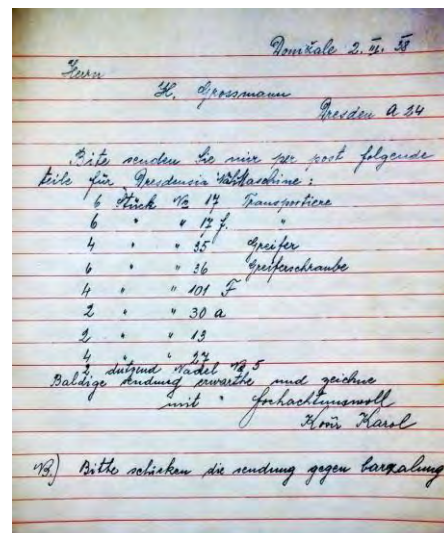 Domžale 2. III. 38
Herrn
H. Grossmann
Dresden A 24
Bite senden Sie mir per post folgende
teile für Dresdensia Nähmaschine :
6 Stück No 17 Transportiere
6 " " 17 f. "
4 " " 35 Greifer
6 " " 36 Greiferschraube
4 " " 101 F
2 " " 30 a
2 " " 13
4 " " 27
2 dutzend Nadel No 5
Baldige sendung erwarthe und zeichne
mit Hochachtunsvoll
Karol
NB.) Bitte schicken die sendung gegen barzalung